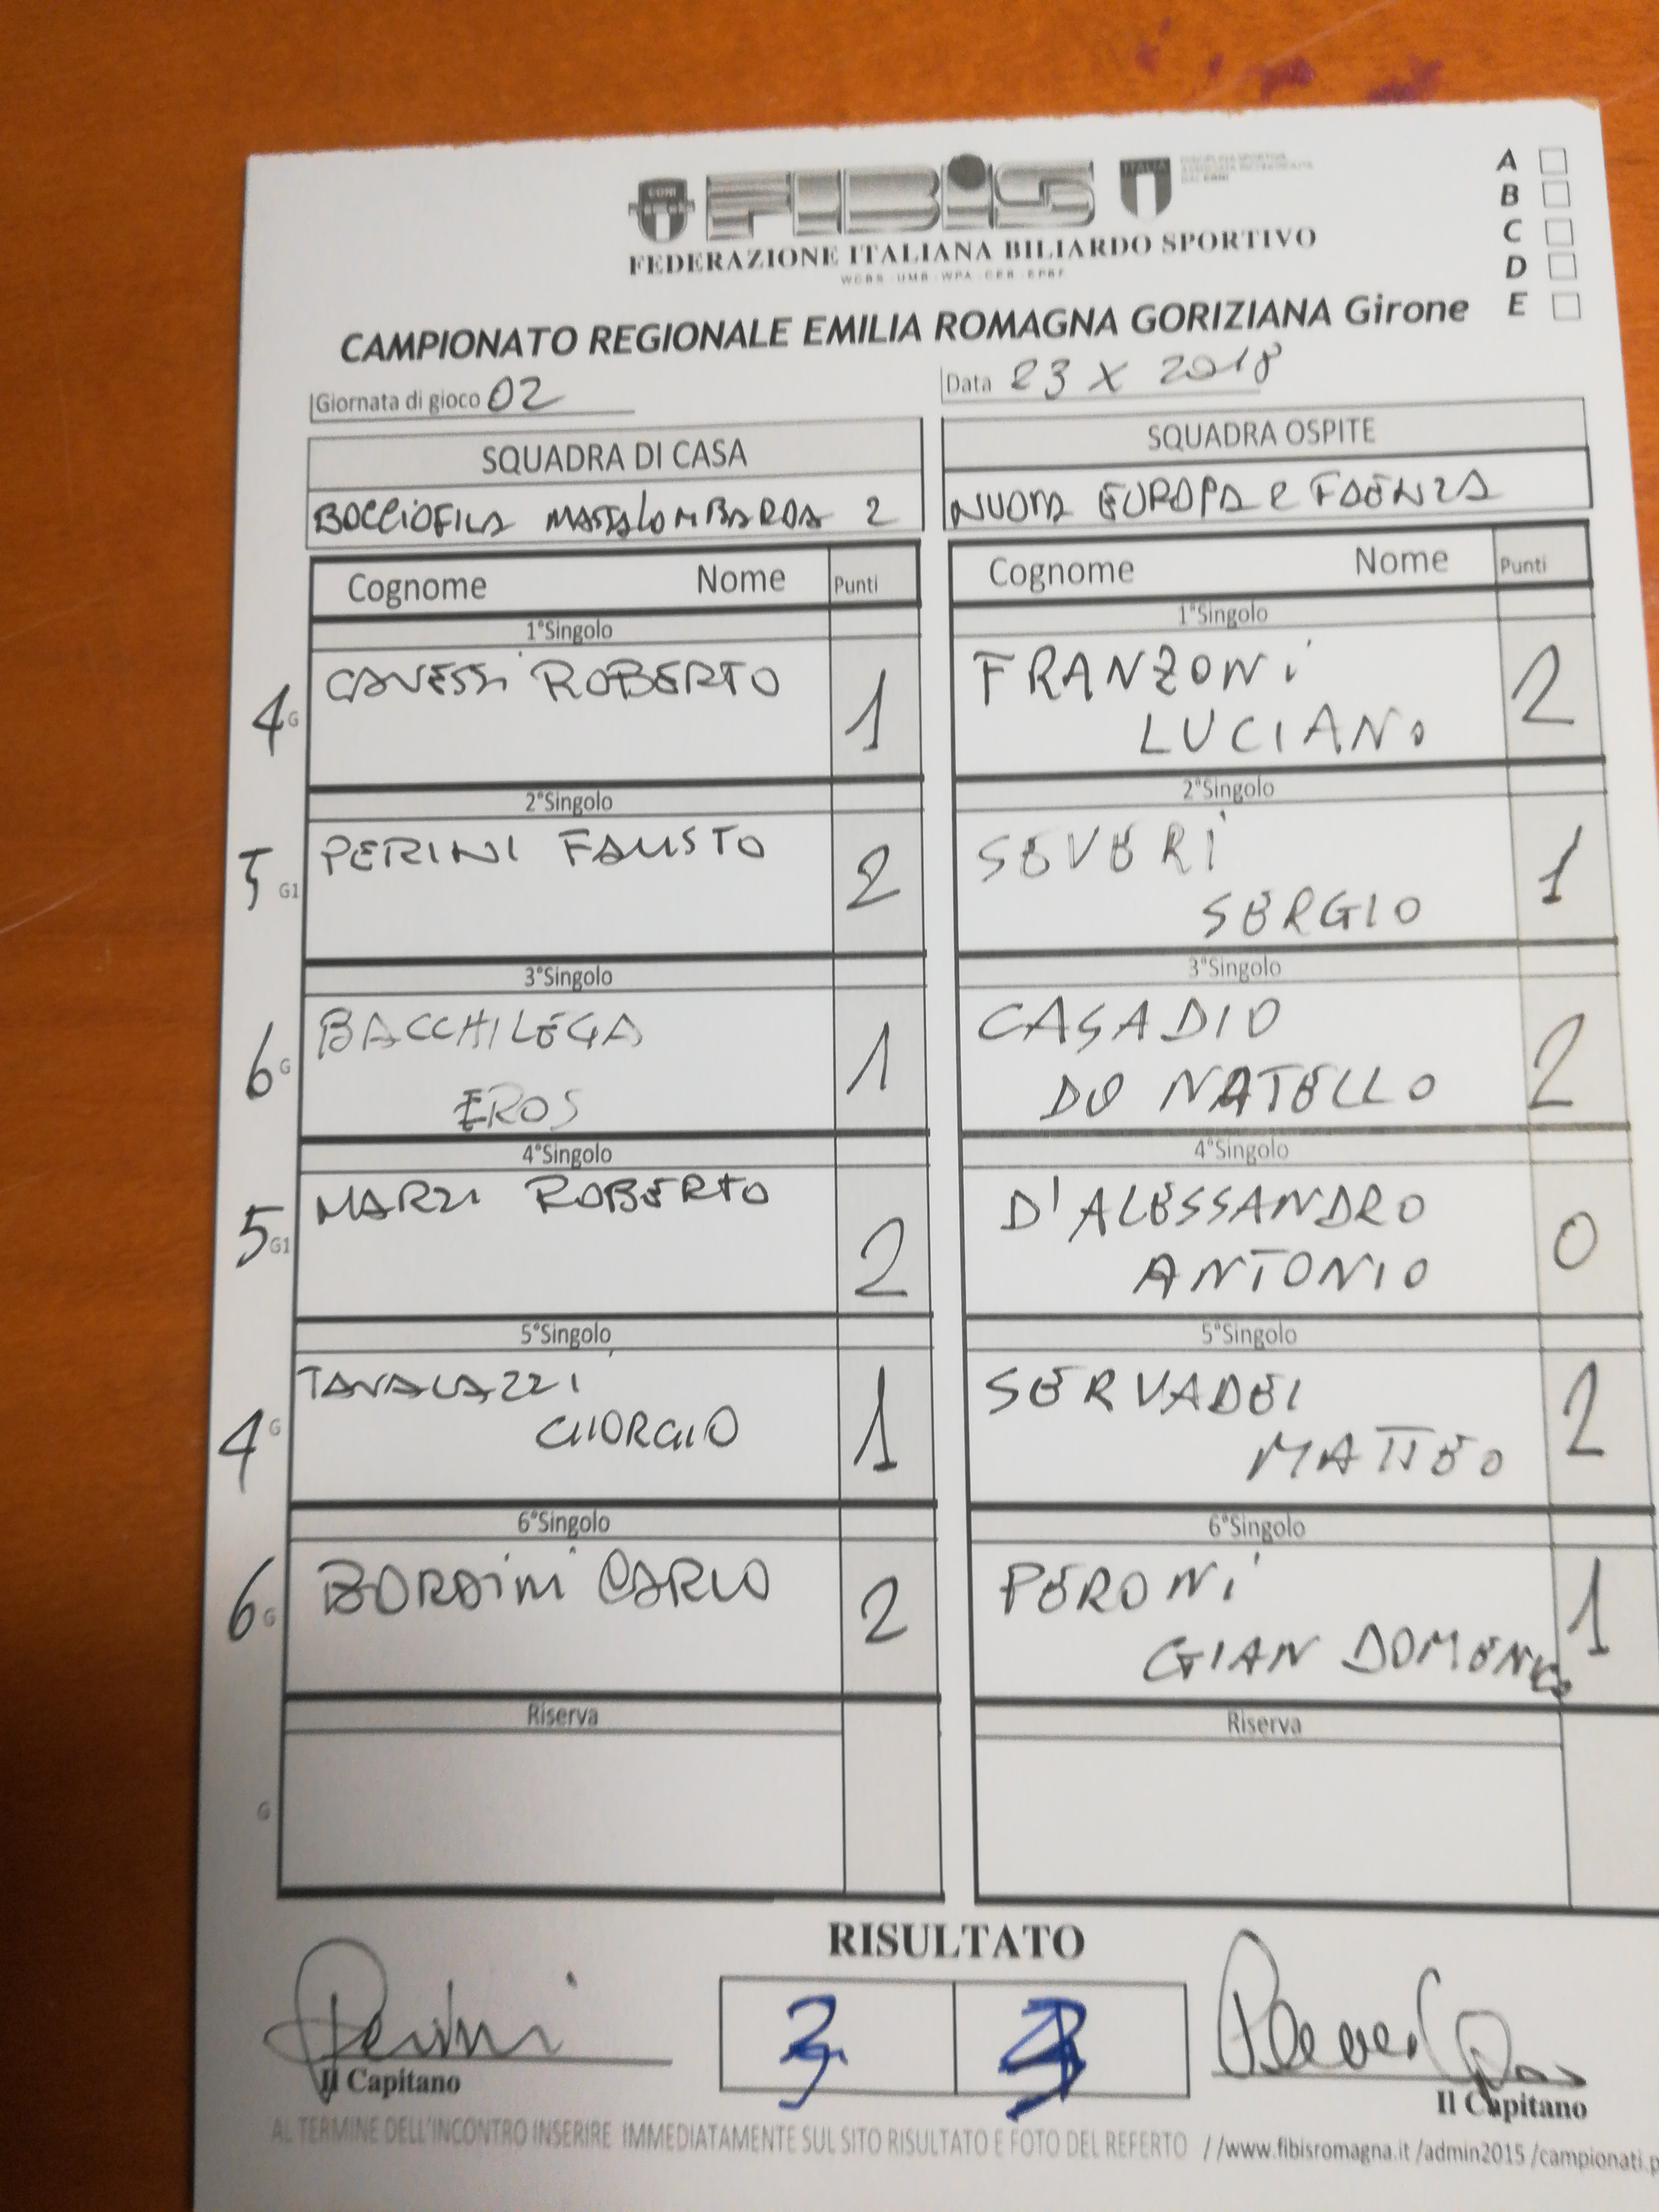 CONI
FIBiS
ITALIA
FEDERAZIONE ITALIANA BILIARDO SPORTIVO
WCBS - UMB - WPA - CEB - EPBF
A
B
C
D
E
CAMPIONATO REGIONALE EMILIA ROMAGNA GORIZIANA Girone
Giornata di gioco 02
Data 23 X 2018
SQUADRA DI CASA
SQUADRA OSPITE
BOCCIOFILA MASSALOMBARDA 2
NUOVA EUROPA 2 FAENZA
Cognome Nome Punti
Cognome Nome Punti
1°Singolo
1°Singolo
4 G
CAVESSI ROBERTO 1
FRANZONI
LUCIANO 2
2°Singolo
2°Singolo
5 G1
PERINI FAUSTO 2
SEVERI
SERGIO 1
3°Singolo
3°Singolo
6 G
BACCHILEGA
EROS 1
CASADIO
DONATELLO 2
4°Singolo
4°Singolo
5 G1
MARZI ROBERTO 2
D'ALESSANDRO
ANTONIO 0
5°Singolo
5°Singolo
4 G
TAVALAZZI
GIORGIO 1
SERVADEI
MATTEO 2
6°Singolo
6°Singolo
6 G
BORDINI CARLO 2
PERONI
GIAN DOMENICO 1
Riserva
Riserva
G
RISULTATO
3 3
Perini
Il Capitano
Il Capitano
AL TERMINE DELL'INCONTRO INSERIRE IMMEDIATAMENTE SUL SITO RISULTATO E FOTO DEL REFERTO //www.fibisromagna.it /admin2015 /campionati.p